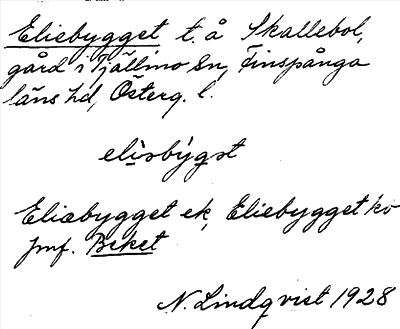 Eliebygget t. å Skallebol,
gård i Tjällmo sn, Finspånga
läns hd, Österg. l.
elisbýgst
Eliebygget ek, Eliebygget ko
jmf. Beket
N. Lindqvist 1928